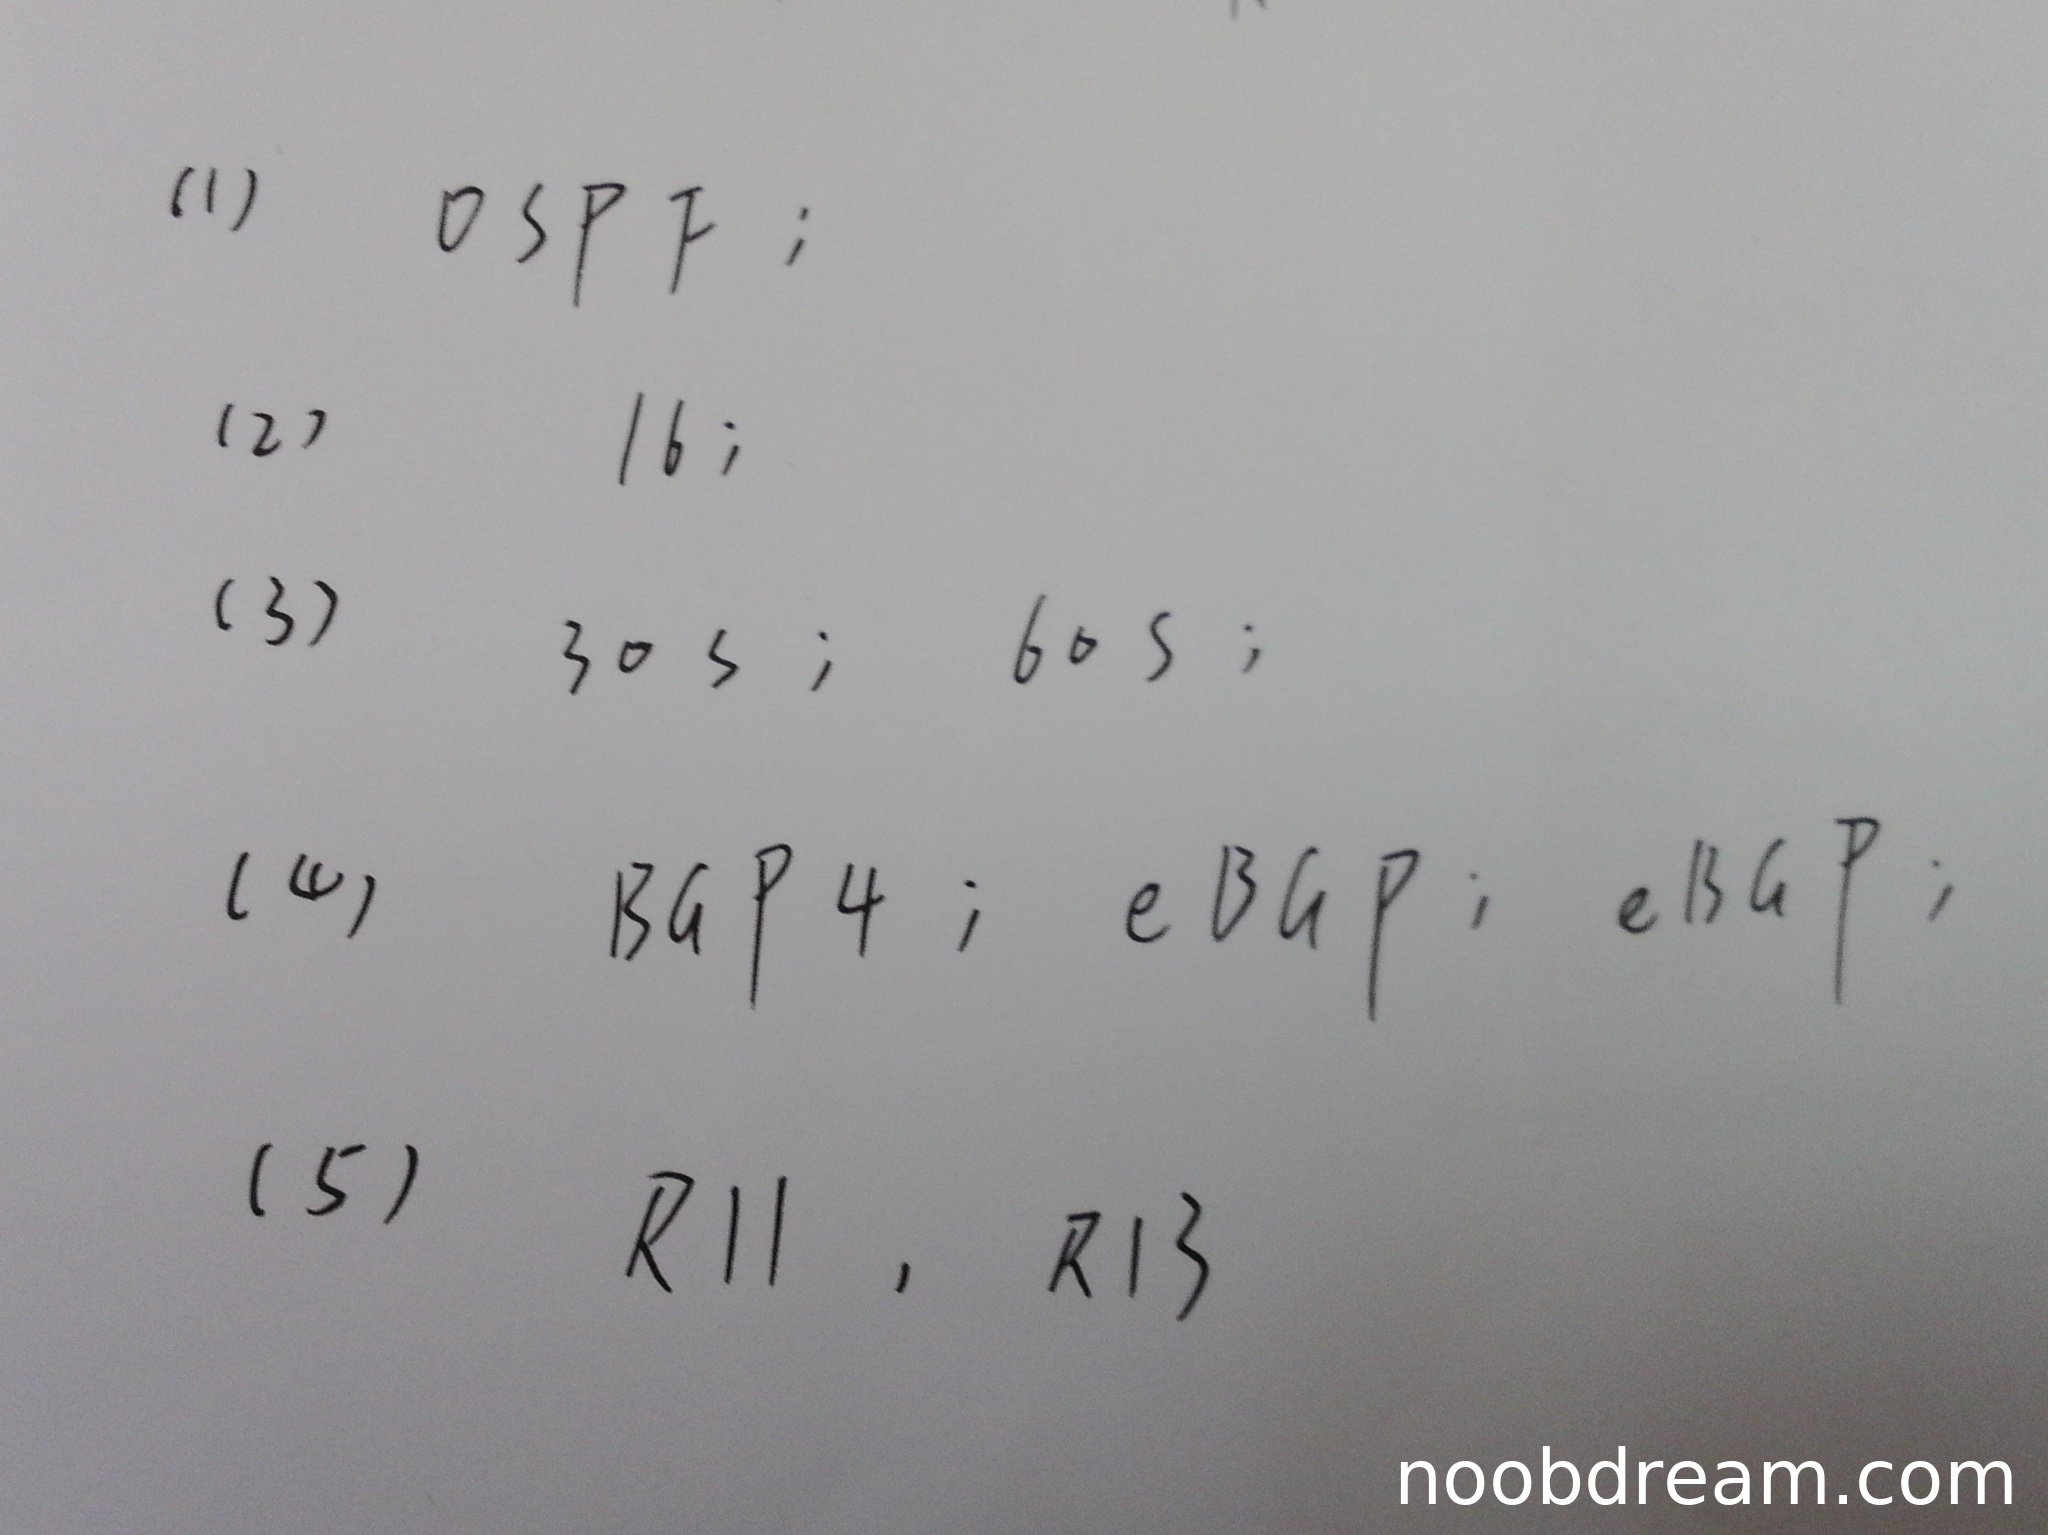 (1) OSPF;
(2) 16;
(3) 30s; 60s;
(4) BGP4; eBGP; eBGP;
(5) R11, R13
noobdream.com